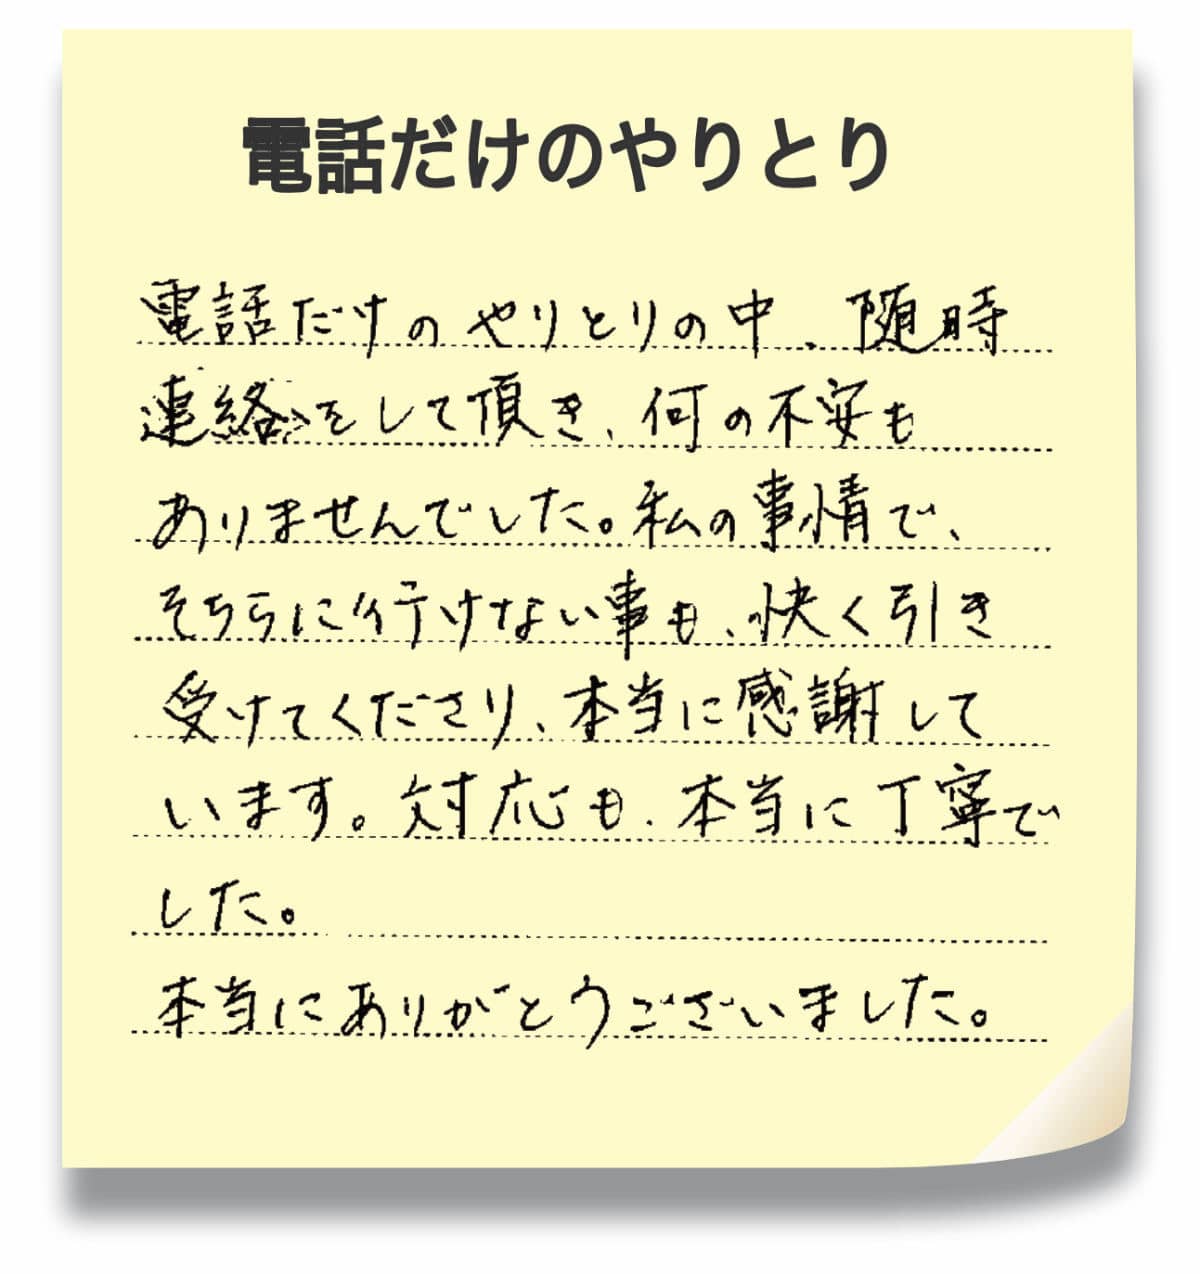 電話だけのやりとり
電話だけのやりとりの中、随時
連絡をして頂き、何の不安も
ありませんでした。私の事情で、
そちらに行けない事も、快く引き
受けてくださり、本当に感謝して
います。対応も、本当に丁寧で
した。
本当にありがとうございました。